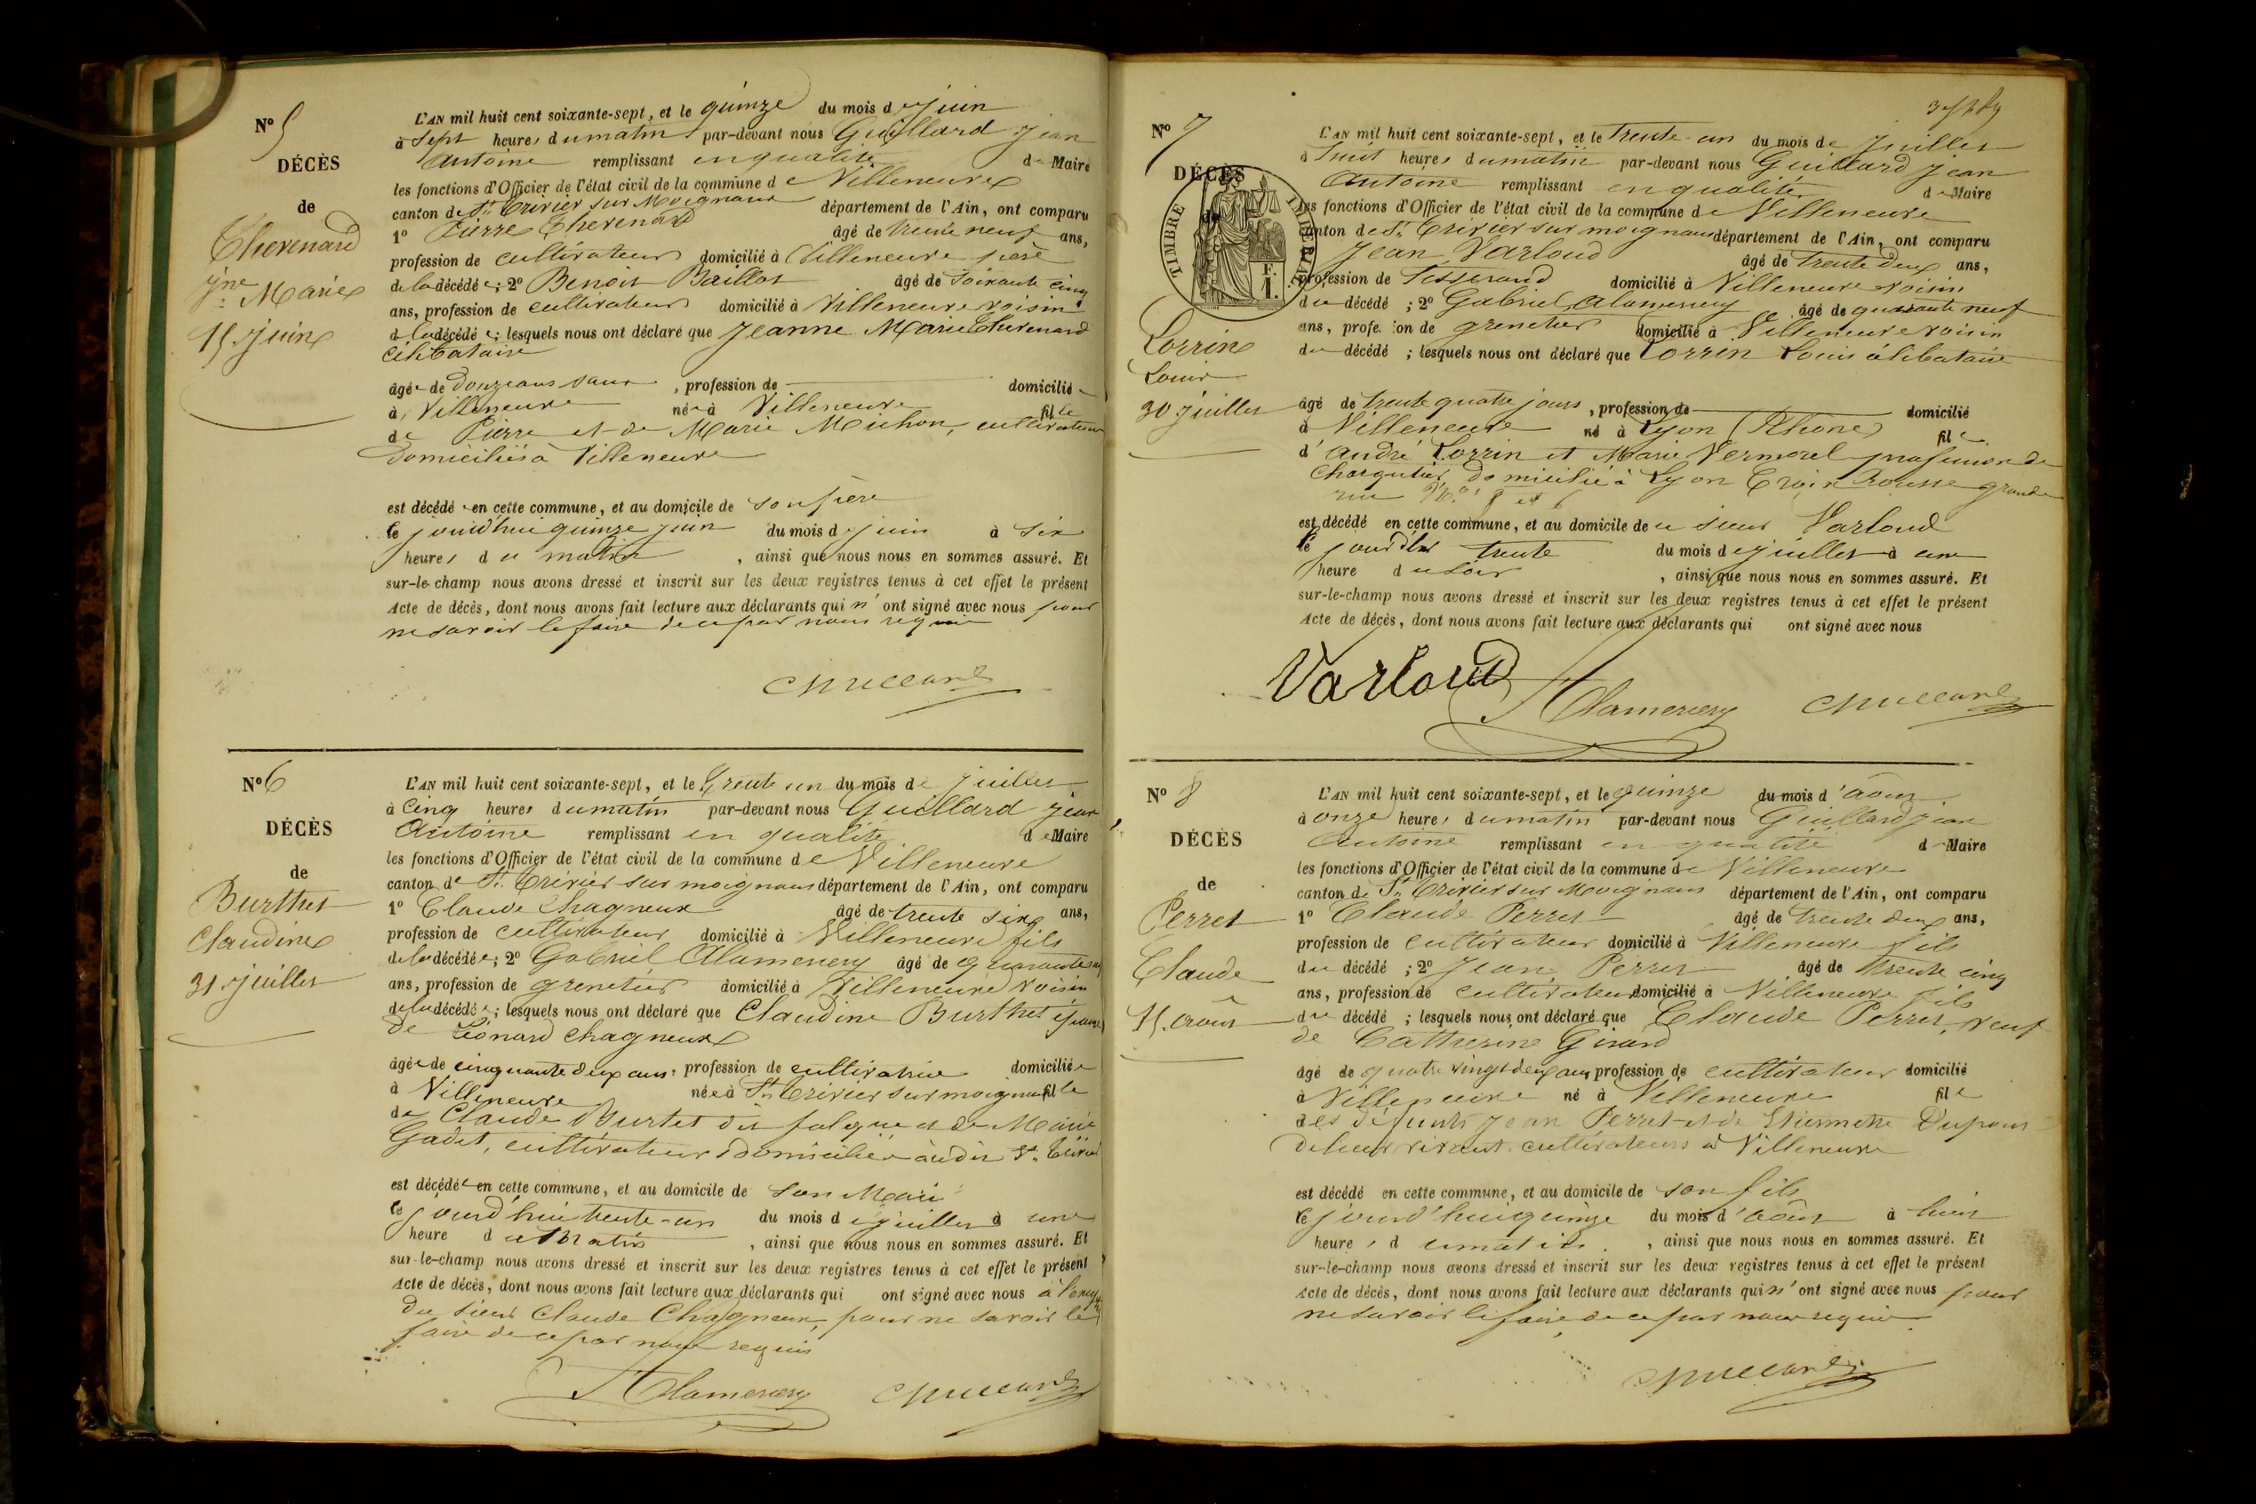 N° 5
DÉCÈS
de
Thevenard
Jne Marie
15 juin
L'AN mil huit cent soixante-sept, et le quinze du mois de juin
à sept heures du matin par-devant nous Guillard Jean
Antoine remplissant en qualité de Maire
les fonctions d'Officier de l'état civil de la commune de Villeneuve
canton de St Trivier sur Moignans département de l'Ain, ont comparu
1° Pierre Thevenard âgé de trente neuf ans,
profession de cultivateur domicilié à Villeneuve père
de la décédée; 2° Benoit Baillat âgé de soixante cinq
ans, profession de cultivateur domicilié à Villeneuve voisin
de la décédée; lesquels nous ont déclaré que Jeanne Marie Thevenard
célibataire
âgée de douze ans , profession de domiciliée
à Villeneuve née à Villeneuve fille
de Pierre et de Marie Michon, cultivateurs
domiciliés à Villeneuve
est décédée en cette commune, et au domicile de son père
le jourd'hui quinze juin du mois de juin à six
heures du matin , ainsi que nous nous en sommes assuré. Et
sur-le-champ nous avons dressé et inscrit sur les deux registres tenus à cet effet le présent
Acte de décès, dont nous avons fait lecture aux déclarants qui n'ont signé avec nous pour
ne savoir le faire de ce par nous requis
Guillard
N° 6
DÉCÈS
de
Burthet
Claudine
31 juillet
L'AN mil huit cent soixante-sept, et le trente un du mois de juillet
à cinq heures du matin par-devant nous Guillard Jean
Antoine remplissant en qualité de Maire
les fonctions d'Officier de l'état civil de la commune de Villeneuve
canton de St Trivier sur moignans département de l'Ain, ont comparu
1° Claude Chagneux âgé de trente six ans,
profession de cultivateur domicilié à Villeneuve fils
de la décédée; 2° Gabriel Alamercery âgé de quarante
ans, profession de grenetier domicilié à Villeneuve voisin
de la décédée; lesquels nous ont déclaré que Claudine Burthet épouse
de Léonard Chagneux
âgée de cinquante deux ans, profession de cultivatrice domiciliée
à Villeneuve née à St Trivier sur moignans fille
de Claude Burtet dit falque et de Marie
Gadet, cultivateurs domiciliés audit St Trivier
est décédée en cette commune, et au domicile de son Mari
le jourd'hui trente-un du mois de juillet à une
heure du Matin , ainsi que nous nous en sommes assuré. Et
sur-le-champ nous avons dressé et inscrit sur les deux registres tenus à cet effet le présent
Acte de décès, dont nous avons fait lecture aux déclarants qui ont signé avec nous à
du sieur Claude Chagneux, pour ne savoir le
faire de ce par nous requis
Alamercery Guillard
N° 7
DÉCÈS
de
TIMBRE IMPÉRIAL
F.
1.
Lorrin
Louis
30 juillet
L'AN mil huit cent soixante-sept, et le trente-un du mois de juillet
à huit heures du matin par-devant nous Guillard Jean
Antoine remplissant en qualité de Maire
les fonctions d'Officier de l'état civil de la commune de Villeneuve
canton de St Trivier sur moignans département de l'Ain, ont comparu
Jean Varloud âgé de trente deux ans,
profession de Tisserand domicilié à Villeneuve voisin
du décédé ; 2° Gabriel Alamercery âgé de quarante neuf
ans, profession de grenetier domicilié à Villeneuve voisin
du décédé ; lesquels nous ont déclaré que Lorrin Louis célibataire
âgé de trente quatre jours , profession de domicilié
à Villeneuve né à Lyon (Rhône) fils
d'André Lorrin et Marie Vermorel profession de
charcutier domicilié à Lyon Croix Rousse grande
rue
est décédé en cette commune, et au domicile de ce sieur Varloud
le jour d'hier trente du mois de juillet à une
heure du soir , ainsi que nous nous en sommes assuré. Et
sur-le-champ nous avons dressé et inscrit sur les deux registres tenus à cet effet le présent
Acte de décès, dont nous avons fait lecture aux déclarants qui ont signé avec nous
Varloud Alamercery Guillard
N° 8
DÉCÈS
de
Perret
Claude
15 août
L'AN mil huit cent soixante-sept, et le quinze du mois d'août
à onze heures du matin par-devant nous Guillard Jean
Antoine remplissant en qualité de Maire
les fonctions d'Officier de l'état civil de la commune de Villeneuve
canton de St Trivier sur Moignans département de l'Ain, ont comparu
1° Claude Perret âgé de trente deux ans,
profession de cultivateur domicilié à Villeneuve fils
du décédé ; 2° Jean Perret âgé de trente cinq
ans, profession de cultivateur domicilié à Villeneuve fils
du décédé ; lesquels nous ont déclaré que Claude Perret, veuf
de Catherine Girard
âgé de quatre vingt deux ans profession de cultivateur domicilié
à Villeneuve né à Villeneuve fils
des défunts Jean Perret et de Etiennette Dupont
de leur vivant cultivateurs à Villeneuve
est décédé en cette commune, et au domicile de son fils
le jourd'hui quinze du mois d'août à huit
heures du matin , ainsi que nous nous en sommes assuré. Et
sur-le-champ nous avons dressé et inscrit sur les deux registres tenus à cet effet le présent
Acte de décès, dont nous avons fait lecture aux déclarants qui n'ont signé avec nous pour
ne savoir le faire de ce par nous requis
Guillard